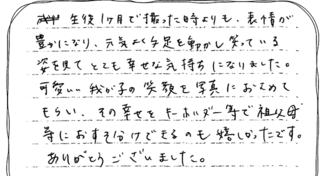 生後1ヶ月で撮った時よりも、表情が
豊かになり、元気よく手足を動かし笑っている
姿を見てとても幸せな気持ちになりました。
可愛い我が子の笑顔を写真におさめて
もらい、その幸せをキーホルダー等で祖父母
等におすそ分けできるのも嬉しかったです。
ありがとうございました。